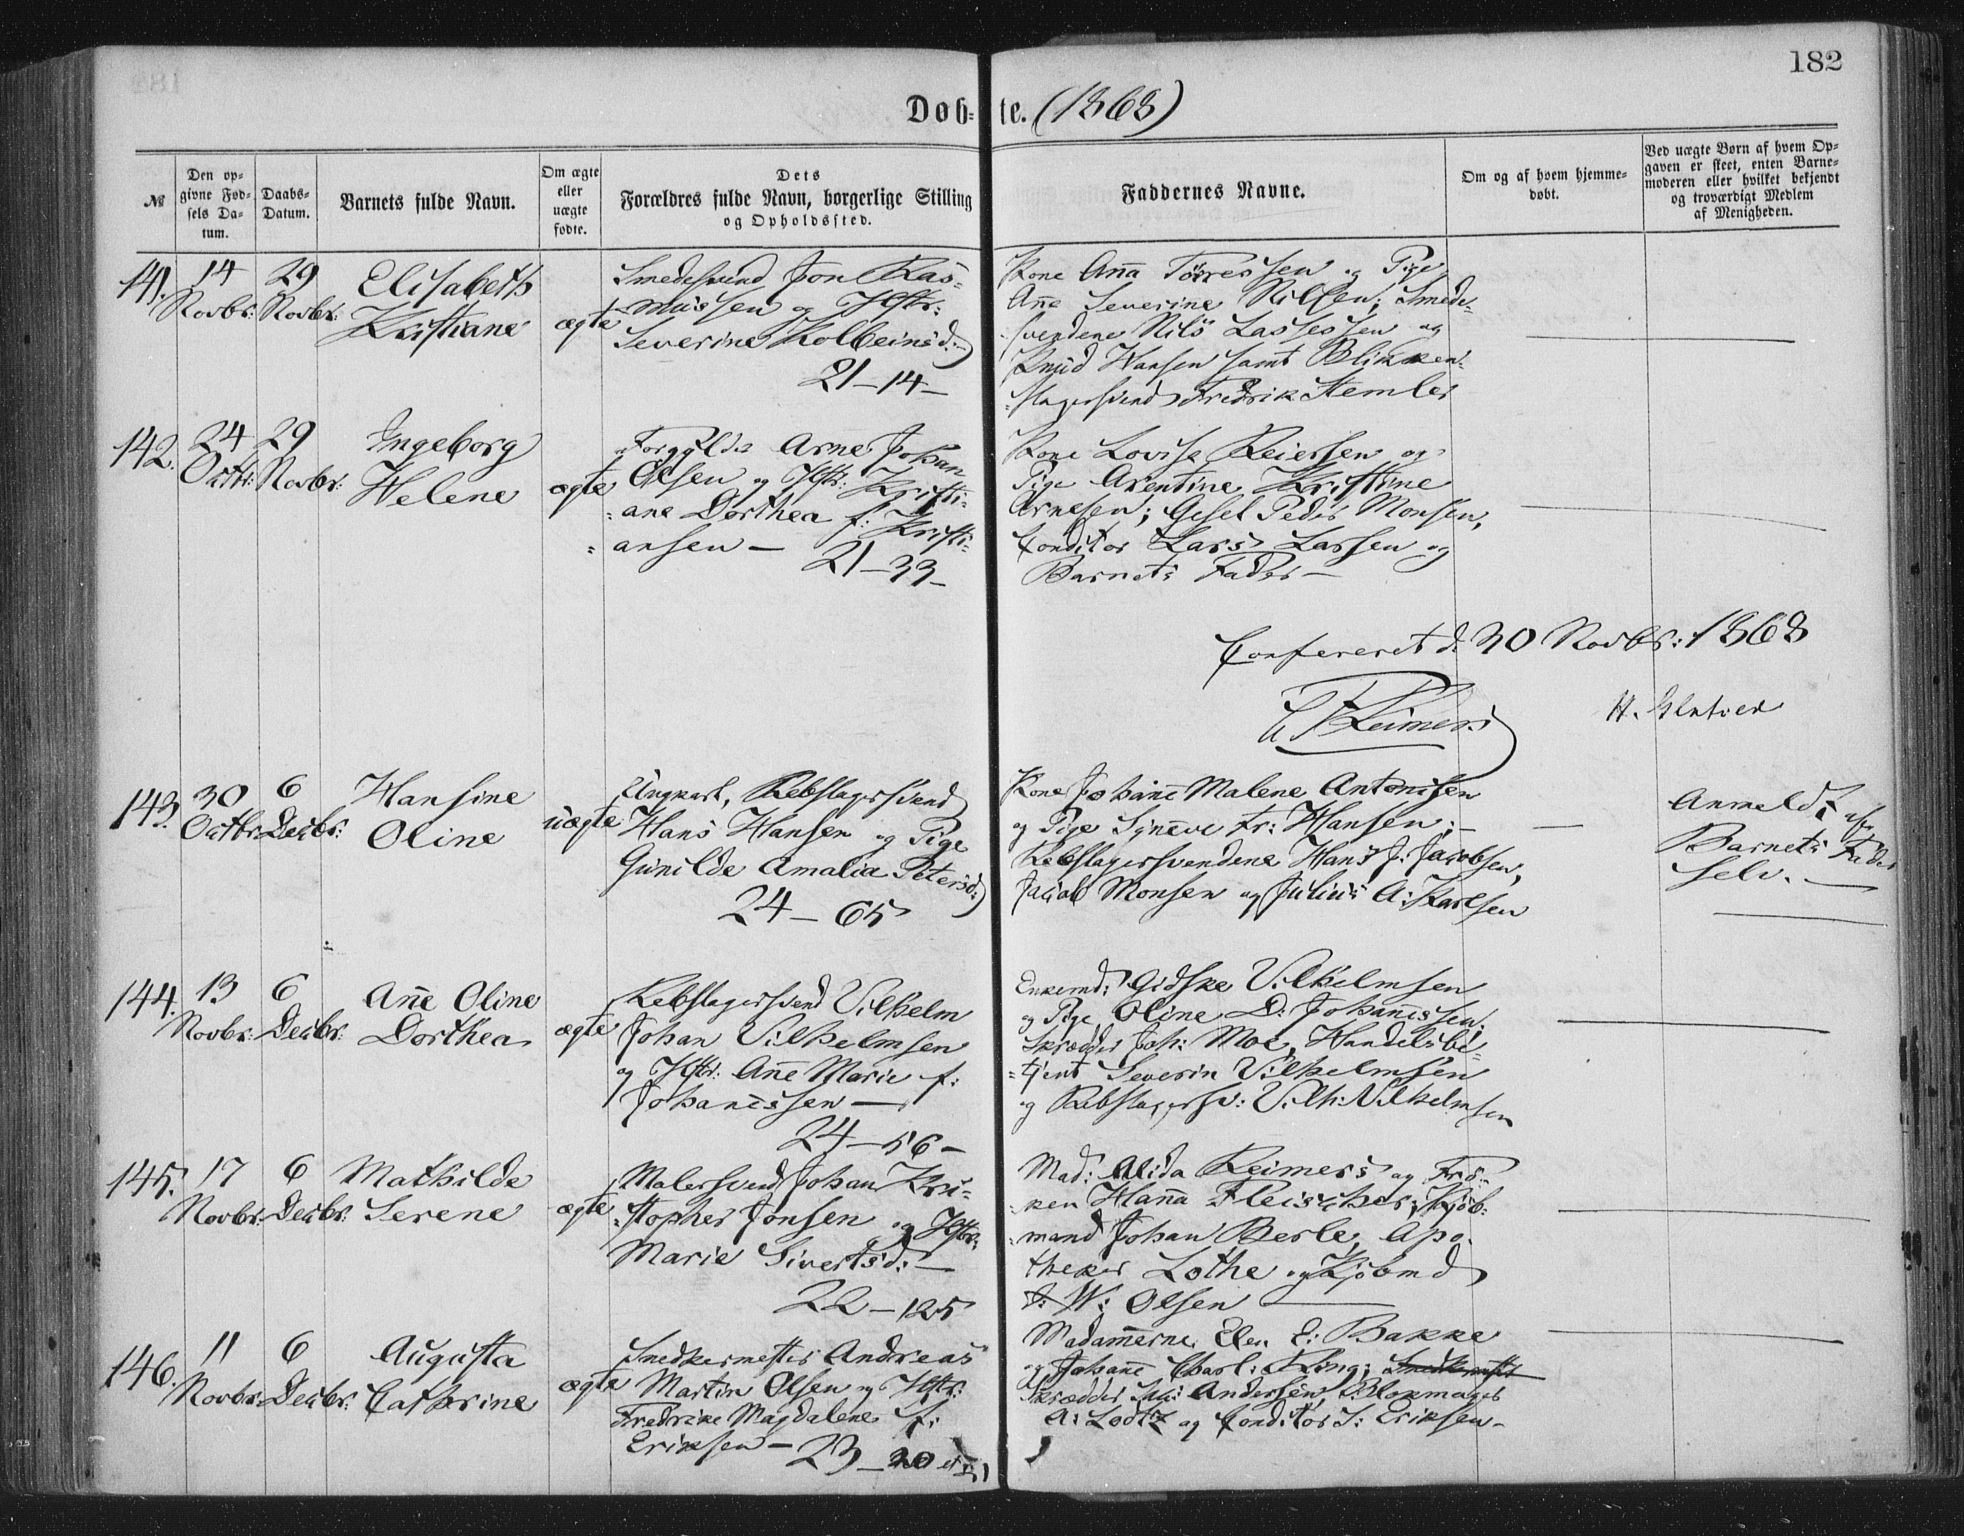 182
Døb-te. (1868)
№
Den op-
givne Fød-
sels Da-
tum.
Daabs-
Datum.
Barnets fulde Navn.
Om ægte
eller
uægte
fødte.
Dets
Forældres fulde Navn, borgerlige Stilling
og Opholdssted.
Faddernes Navne.
Om og af hvem hjemme-
døbt.
Ved uægte Børn af hvem Op-
gaven er skeet, enten Barne-
moderen eller hvilket bekjendt
og troværdigt Medlem
af Menigheden.
141. 14 Novbr: 29 Novbr:
Elisabeth
Kristiane
ægte
Smedesvend Jon Ras-
mussen og Hstr:
Severine Kolbeinsd:
21-14-
Kone Anna Torressen og Pige
Anne Severine Nilsen; Smede-
svendene Nils Lassessen og
Knud Hansen samt Blikken-
slagersvend Fredrik Stemler
142. 24 Octbr: 29 Novbr:
Ingeborg
Helene
ægte
Forgylder Arne Johan
Olsen og Hstr: Kristi-
ane Dorthea f: Kristi-
ansen —
21-33-
Kone Lovise Reiersen og
Pige Arentine Kristine
Arnesen; Gesel Peder Monsen,
Conditor Lars Larsen og
Barnets Fader —
Confereret d. 30 Novbr: 1868
Reimers
H.
143. 30 Octbr: 6 Decbr:
Hansine
Oline
uægte
Ungkarl, Rebslagersvend
Hans Hansen og Pige
Gunilde Amalia Petersd:
24-65
Kone Johanne Malene Antonisen
og Pige Synneve Fr: Hansen; —
Rebslagersvendene Hans J: Jacobsen,
Jacob Monsen og Julius A: Karlsen
Anmeldt af
Barnets Fader
selv. —
144. 13 Novbr: 6 Decbr:
Anne Oline
Dorthea
ægte
Rebslagersvend Vilhelm
Johan Vilhelmsen
og Hstr: Anne Marie f:
Johannessen —
24-56-
Enkemd: Gidske Vilhelmsen
og Pige Oline D: Johannessen;
Skrædder Joh: Moe, Handelsbe-
tjent Severin Vilhelmsen
og Rebslagersv: Vilh: Vilhelmsen
145. 17 Novbr: 6 Decbr:
Mathilde
Serene
ægte
Malersvend Johan Kri-
stopher Jonsen og Hstr:
Marie Sivertsd: —
22-125
Mad: Alida Reimers og Frø-
ken Hanna Fleischer; Kjøb-
mand Johan Berle, Apo-
theker Lothe og Kjøbmd
J: W: Olsen —
146. 11 Novbr: 6 Decbr:
Augusta
Cathrine
ægte
Snedkermester Andreas
Martin Olsen og Hstr:
Fredrike Magdalene f:
Eriksen — 23-30
Madamerne Elen E: Bakke
og Johanne Charl: Kling;
Skrædder Andersen, Blokmager
A: Lootz og Conditor S: Eriksen-